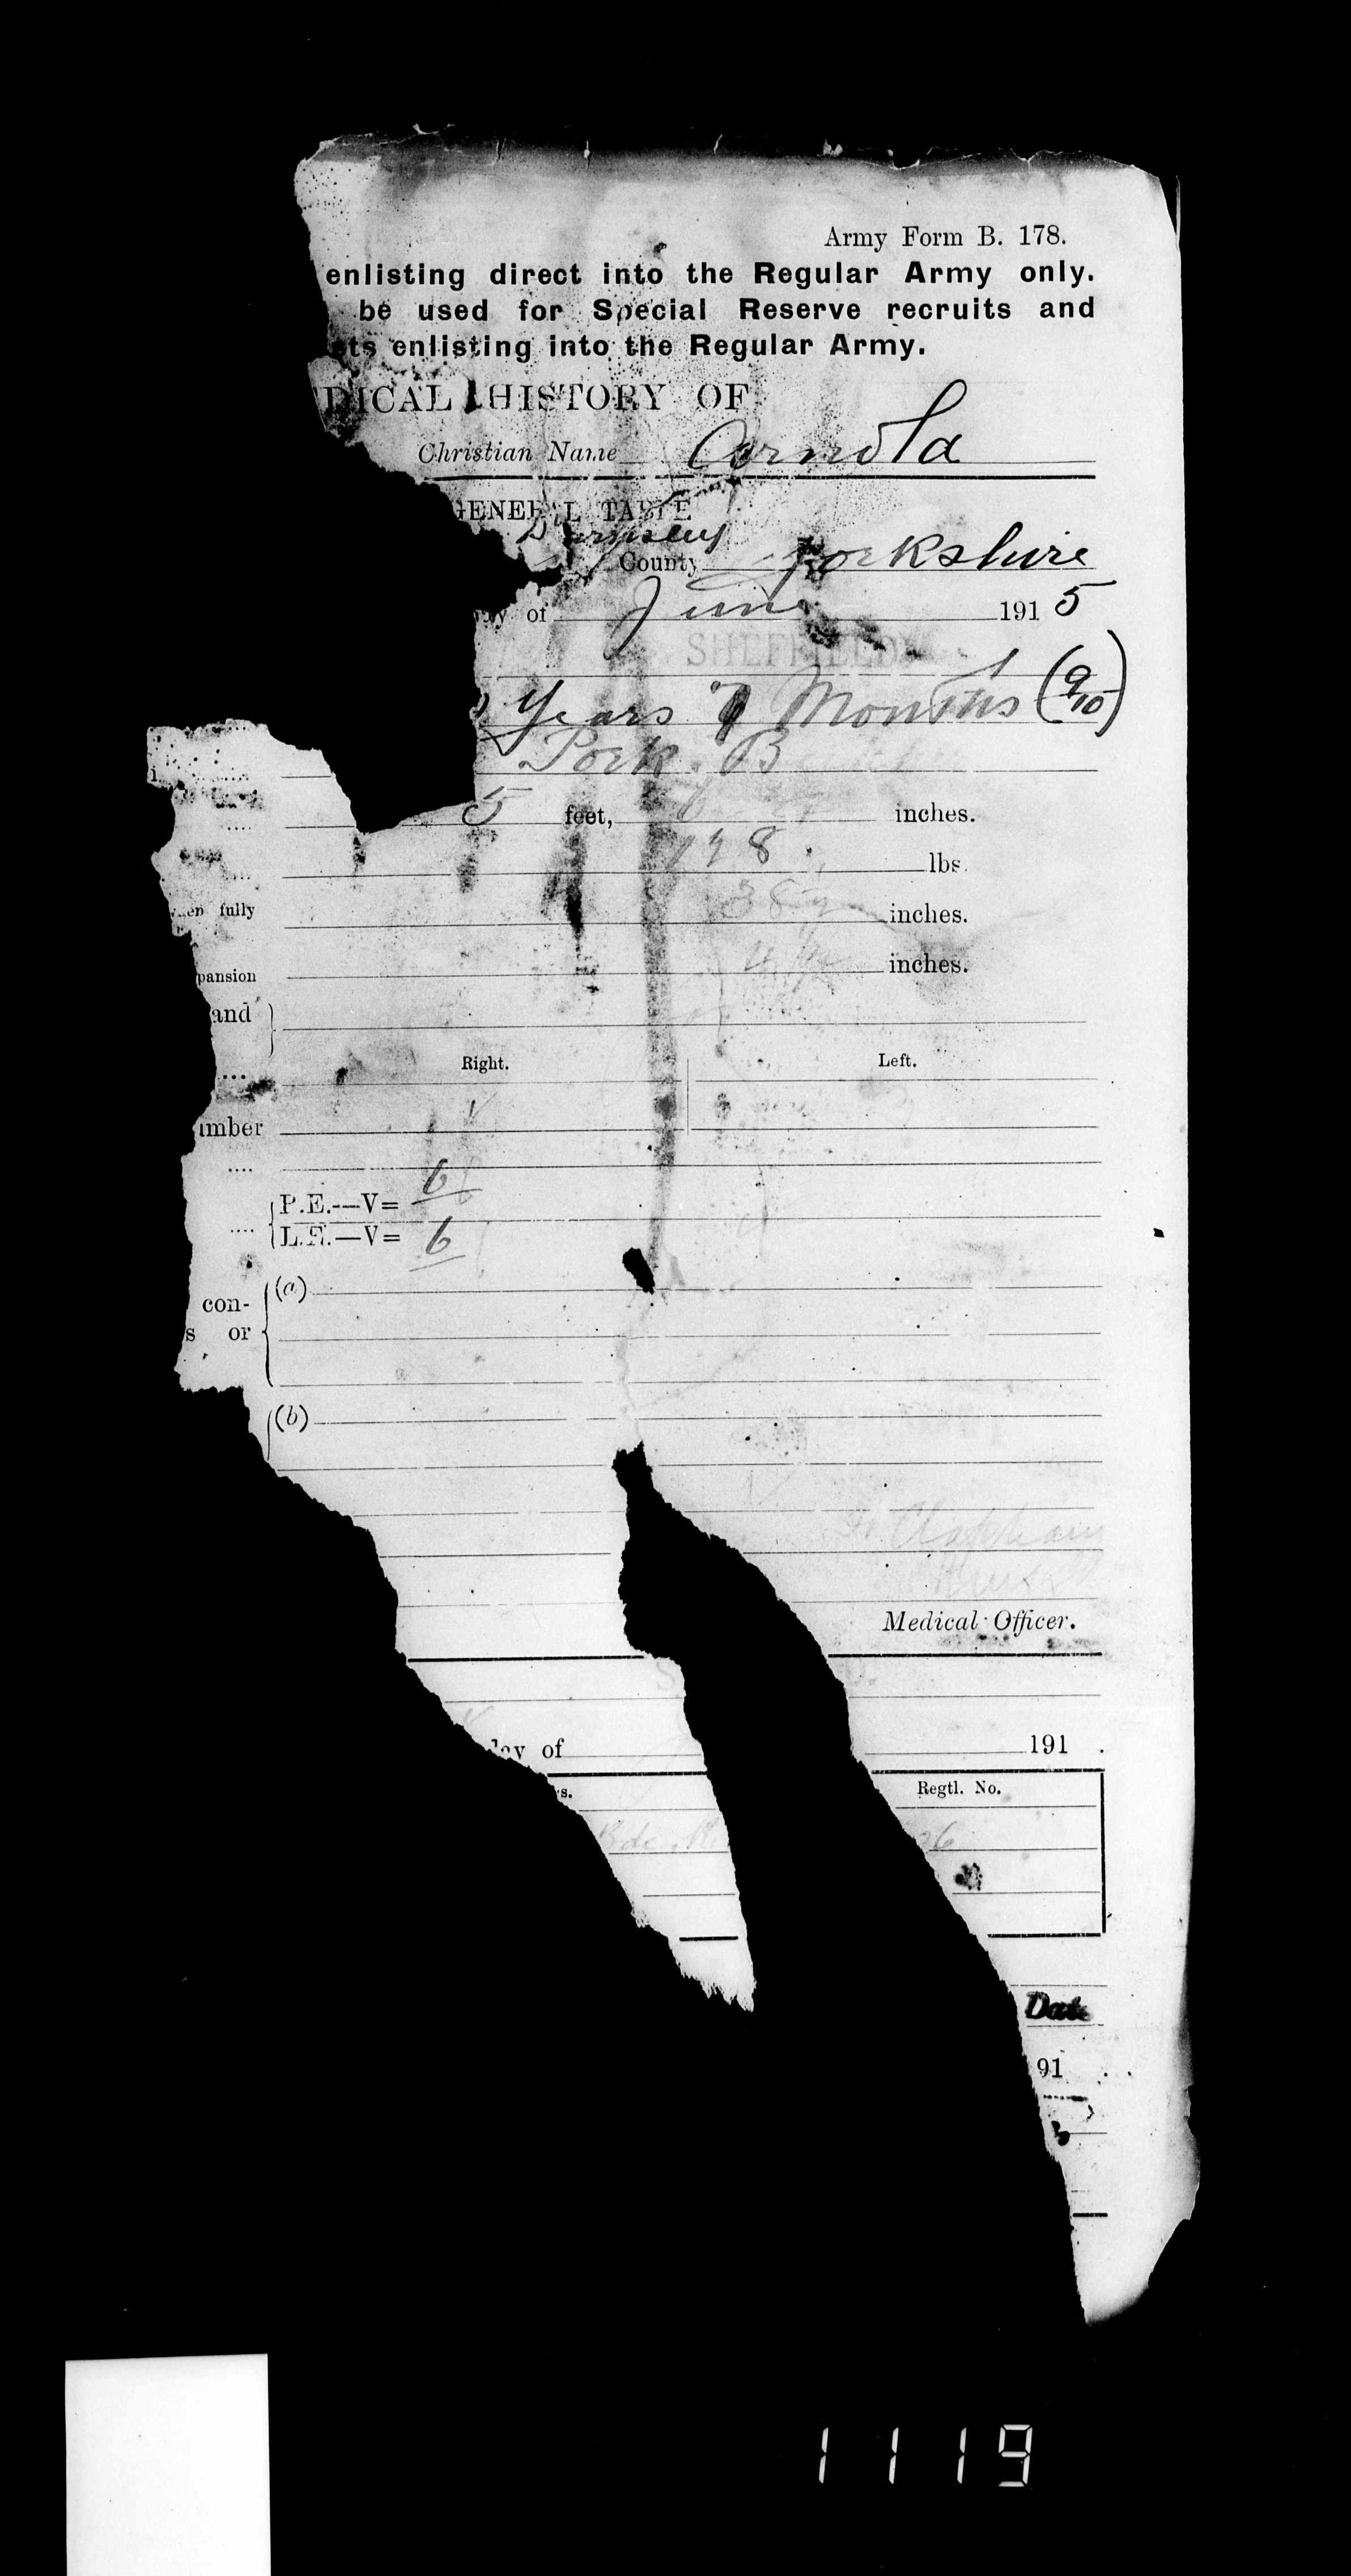 Army Form B. 178.
enlisting direct into the Regular Army only.
be used for Special Reserve recruits and
ts enlisting into the Regular Army.
DICAL HISTORY OF
Christian Name Arnold
GENERAL TABLE
Barnsley
County Yorkshire
ay of June 1915
SHEFFIELD
Years 7 Months (9/10)
5 feet, inches.
lbs.
en fully inches.
pansion inches.
and
Right. Left.
umber
R.E.—V= 6
L.E.—V= 6
(a)
con-
s or
(b)
Medical Officer.
day of 191 .
s. Regtl. No.
Bde. 26
Date
91
1119